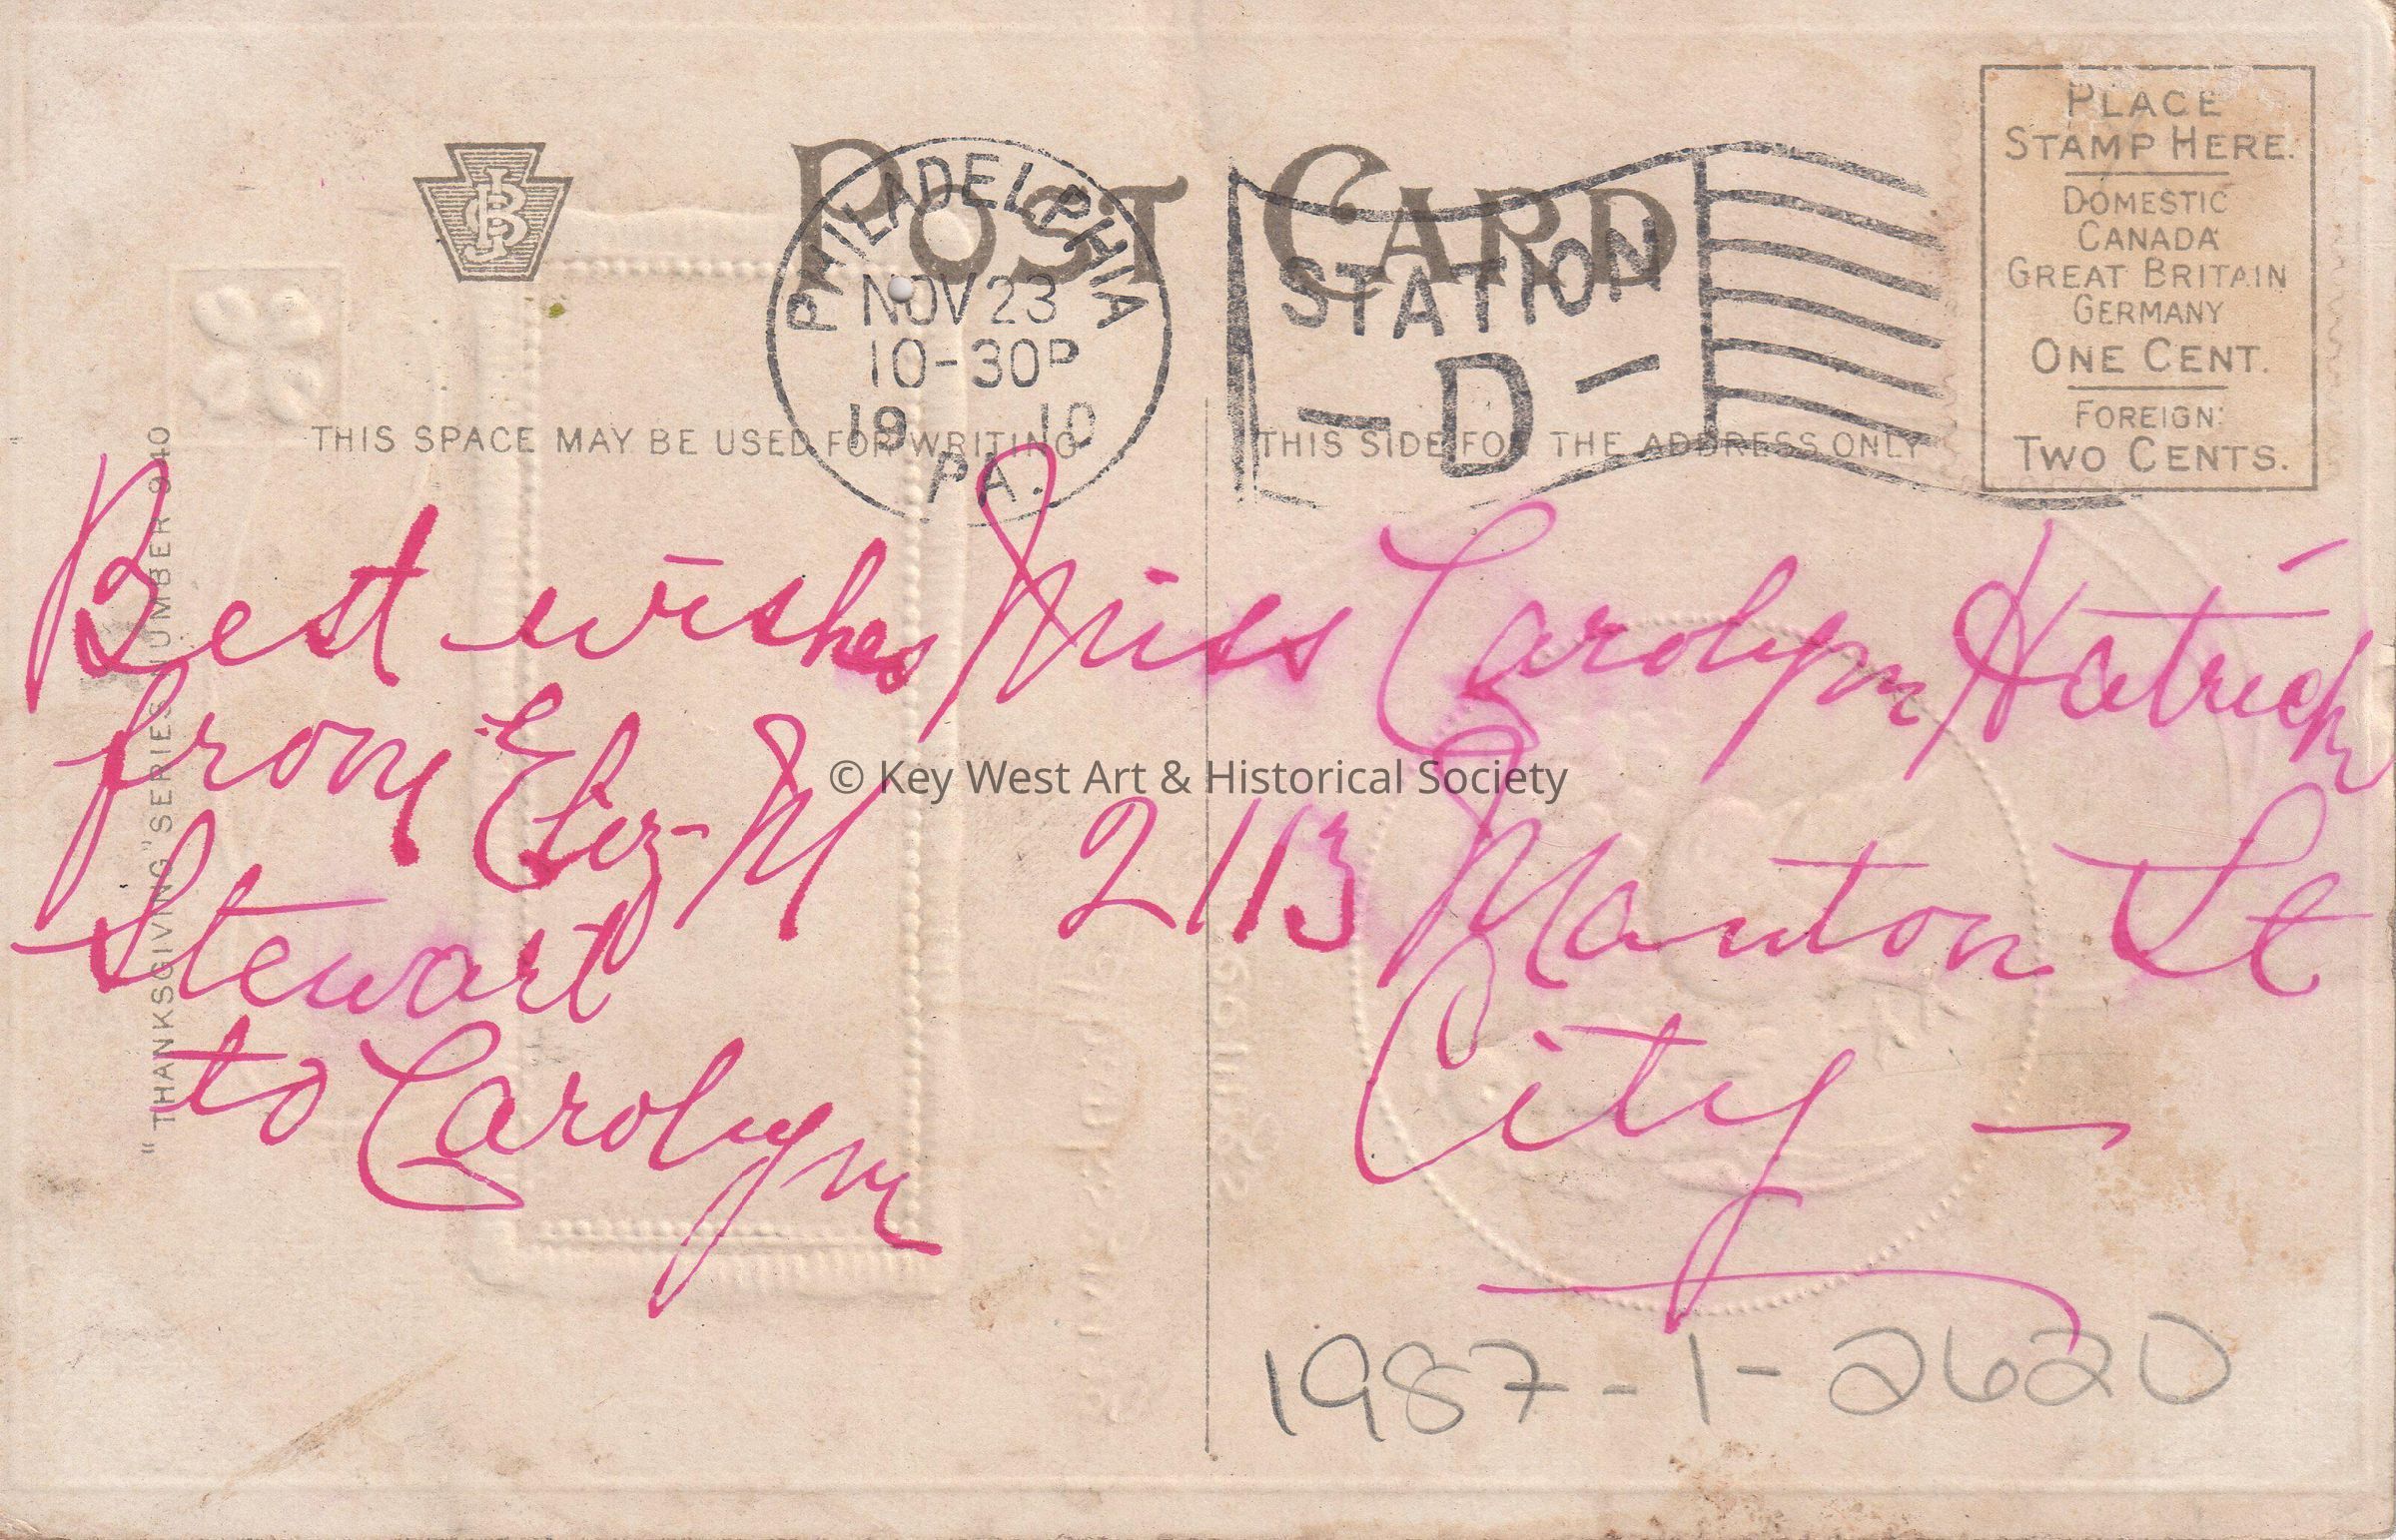 POST CARD
PHILADELPHIA
NOV 23
10-30P
19 10
PA.
STATION
- D -
PLACE
STAMP HERE.
DOMESTIC
CANADA
GREAT BRITAIN
GERMANY
ONE CENT.
FOREIGN:
TWO CENTS.
THIS SPACE MAY BE USED FOR WRITING
THIS SIDE FOR THE ADDRESS ONLY
"THANKSGIVING" SERIES NUMBER 940
Best wishes
from Eliz- M
Stewart
to Carolyn
Miss Carolyn Hatrick
2113 Manton St
City -
© Key West Art & Historical Society
1987-1-2620